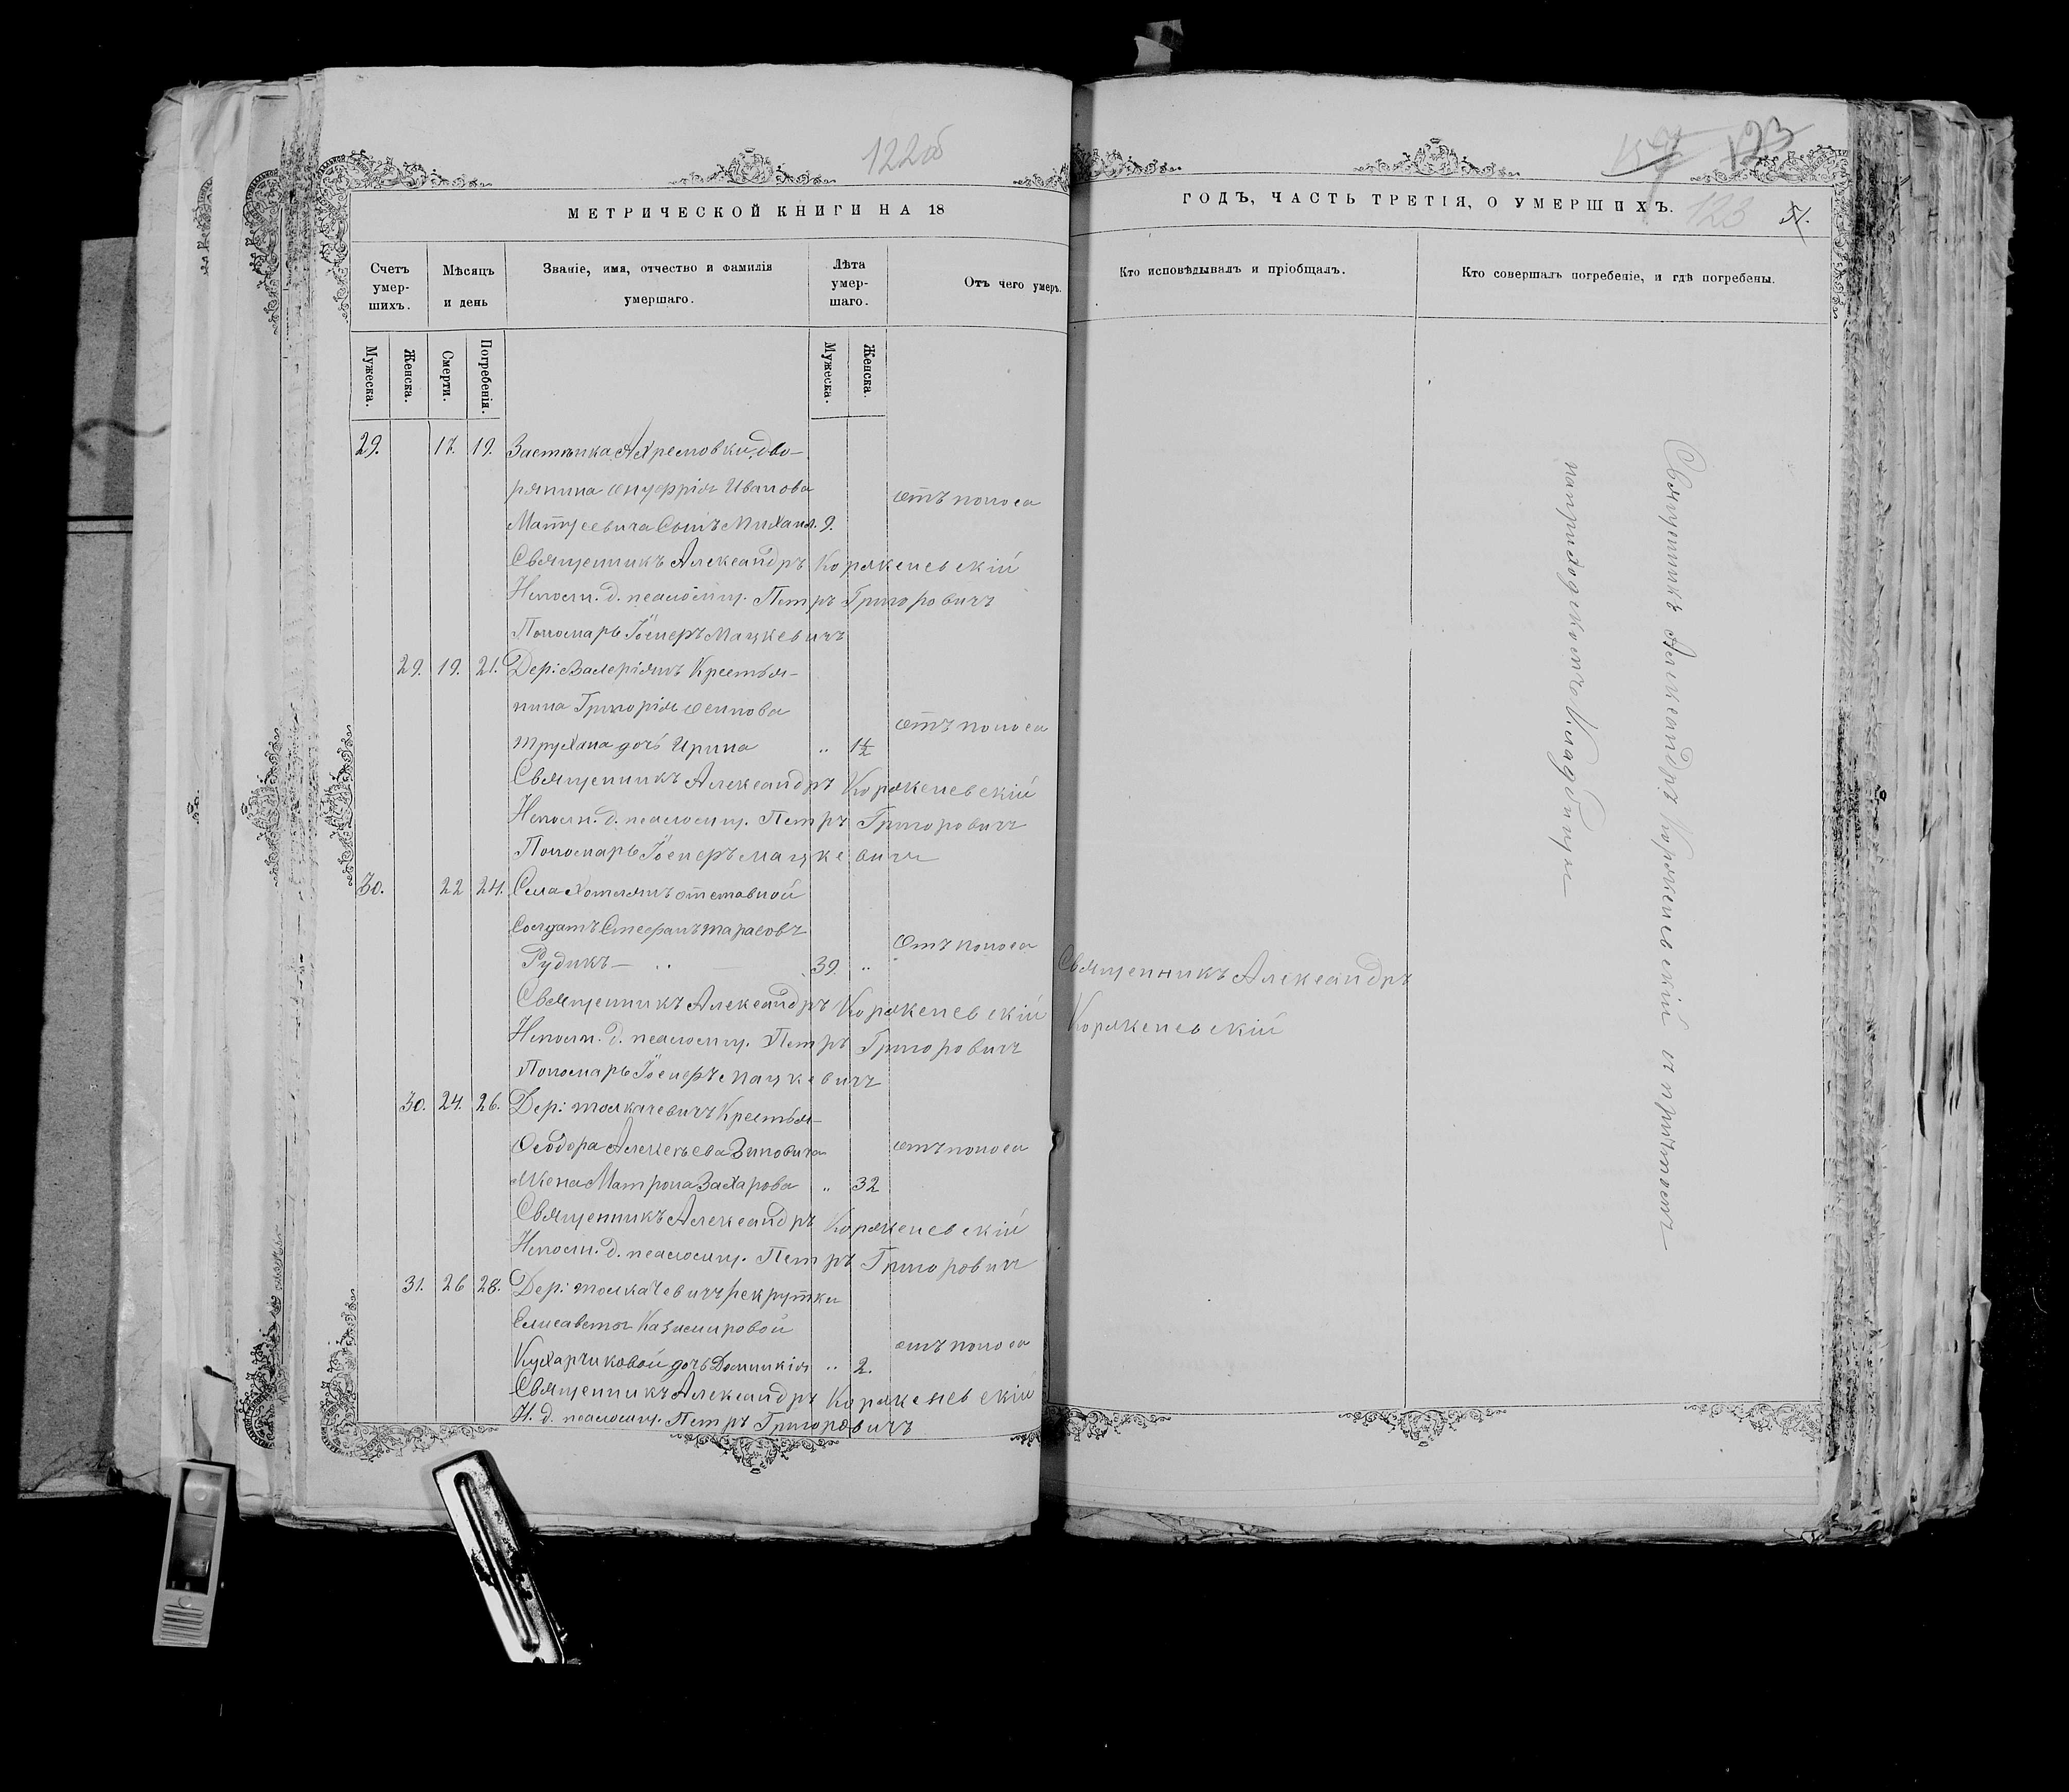 122об
МЕТРИЧЕСКОЙ КНИГИ НА 18
Счетъ умер-шихъ.
Мѣсяцъ и день
Званіе, имя, отчество и фамилія умершаго.
Лѣта умер-шаго.
Отъ чего умеръ.
Мужеска.
Женска.
Смерти.
Погребенія.
Мужеска.
Женска.
29. 17. 19. Застѣнка Ахремовки дво-
рянина Онуфрія Иванова
отъ поноса
Матусевича Сынъ Михаил. 9.
Священникъ Александръ Коряженевскій
Исполн. д. псаломщ. Петръ Григоровичъ
Пономарь Іосифъ Мацкевичъ
29. 19. 21. Дер: Валеріянъ Крестья-
нина Григорія Осипова
отъ поноса
Трухана дочь Ирина „ 1½
Священникъ Александръ Коряженевскій
Исполн. д. псаломщ. Петръ Григоровичъ
Пономарь Іосифъ Мацкевичъ
30. 22 24. Села Хотлянъ отставной
Солдатъ Стефанъ Тарасовъ
отъ поноса
Рудикъ — „ 39. „
Священникъ Александръ Коряженевскій
Исполн. д. псаломщ. Петръ Григоровичъ
Пономарь Іосифъ Мацкевичъ
30. 24. 26. Дер: Толкачевичъ Крестья-
Ѳеодора Алексѣева Зиновича
отъ поноса
Жена Матрона Захарова „ 32
Священникъ Александръ Коряженевскій
Исполн. д. псаломщ. Петръ Григоровичъ
31. 26 28. Дер: Толкачевичъ рекрутки
Елисаветы Казимировой
отъ поноса
Кухарчиковой дочь Домникія „ 2.
Священникъ Александръ Коряженевскій
И. д. псаломщ. Петръ Григоровичъ
123
ГОДЪ, ЧАСТЬ ТРЕТІЯ, О УМЕРШИХЪ.
123
51.
Кто исповѣдывалъ и пріобщалъ.
Кто совершалъ погребеніе, и гдѣ погребены.
Священникъ Александръ
Коряженевскій
Священникъ Александръ Коряженевскій съ причтомъ
на приходскомъ Кладбищѣ